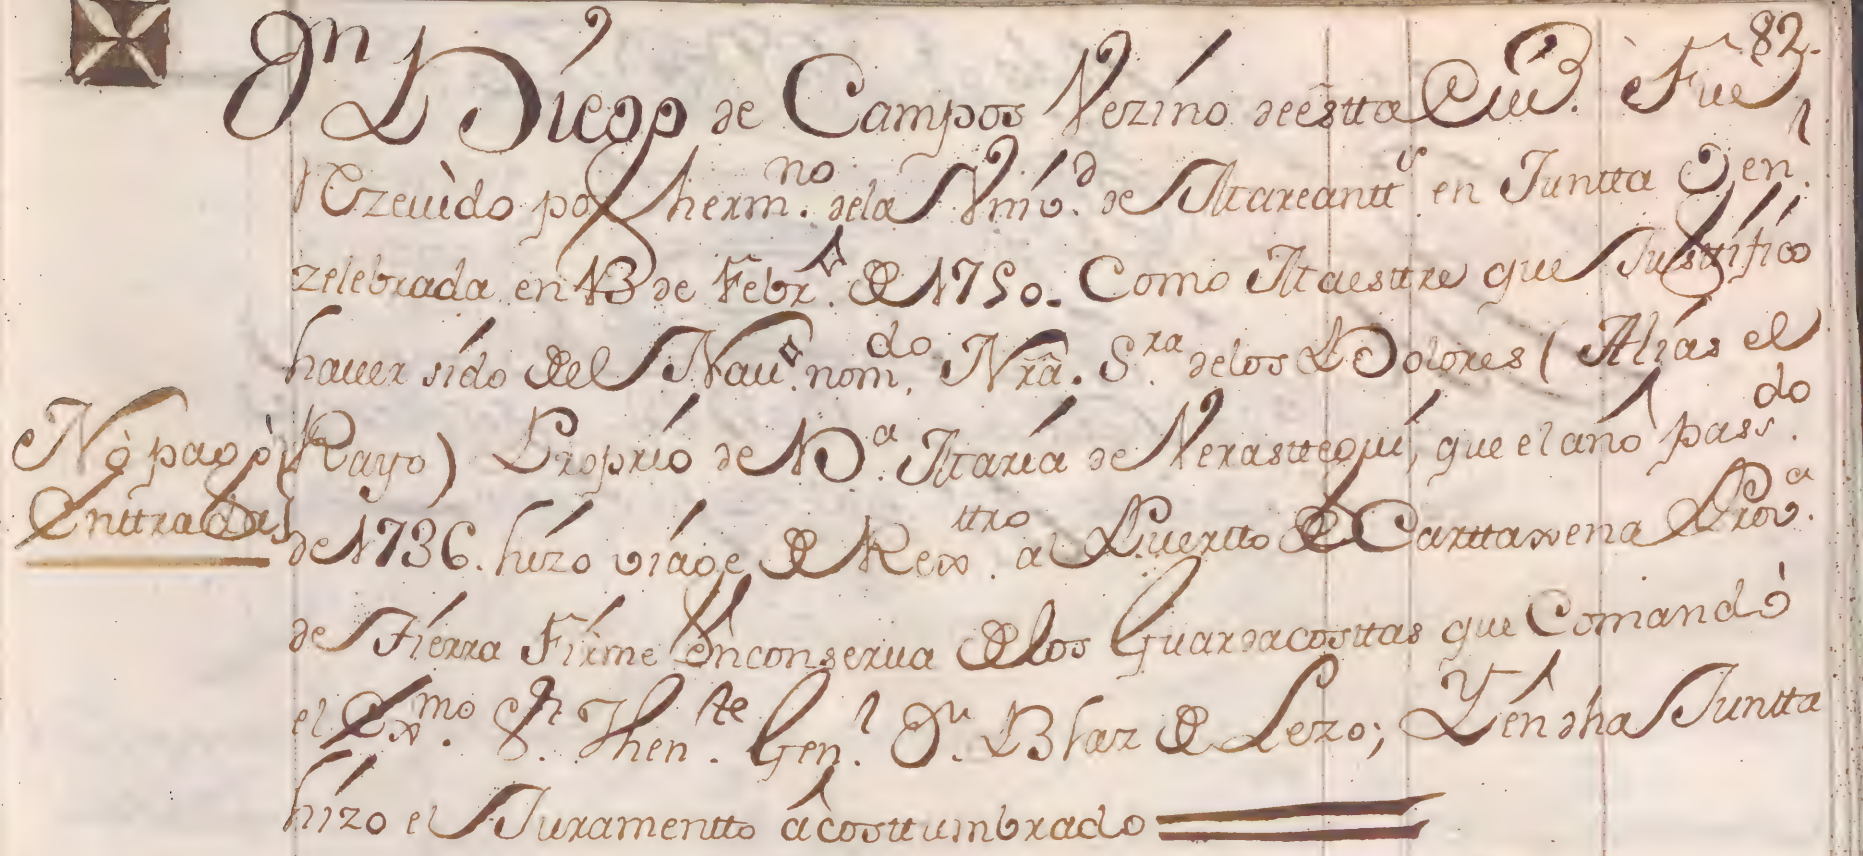 82.
Dn Diego de Campos Vezino deêstta Ciud. Fue
Rezeuido por hermno. dela Vnibd. de Mareanttes en Juntta Genl.
zelebrada en 13 de Febro. de 1750. Como Maesttre que Justtifico
hauer sido del Nauo. nomdo. Nrâ. Sra. delos Dolores (Alias el
Rayo) Proprio de Da. Maria de Verasttegui, que el año passdo.
de 1736. hizo viage de Rexttro. al Puertto de Carttaxena Prova.
de Tierra Firme ênconserua delos Guardacosttas que Comandò
el Exmo. Sr. Thente. Genl. Dn. Blaz de Lezo; Y en dha Juntta
hizo el Juramentto âcosttumbrado
Nò pagò
Enttrada